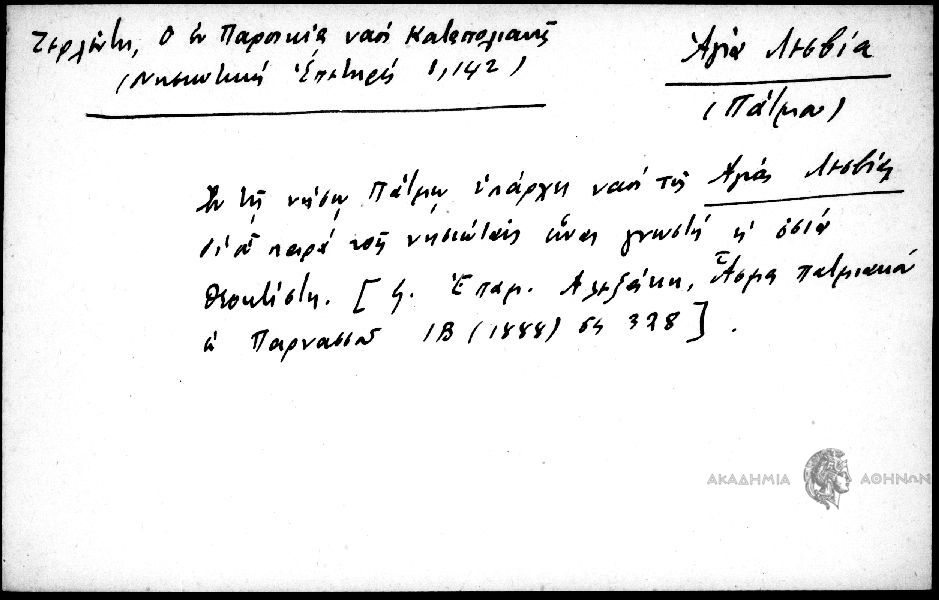 Ζερλέντη, Ο ἐν Παροικίᾳ ναὸς Καταπολιανῆς
(Νησιωτικὴ Ἐπετηρὶς 1, 142)
Ἁγία Λεσβία
(Πάτμου)
Ἐν τῇ νήσῳ Πάτμῳ ὑπάρχει ναὸς τῆς Ἁγίας Λεσβίας
δι' ἃ παρὰ τοῖς νησιώταις εἶναι γνωστὴ ἡ ὁσία
Θεοκτίστη. [ Ἐπαμ. Ἀλεξάκη, Ἄσμα πατμιακά
ἐν Παρνασσοῦ ΙΒ (1888) σελ 328 ] .
ΑΚΑΔΗΜΙΑ ΑΘΗΝΩΝ